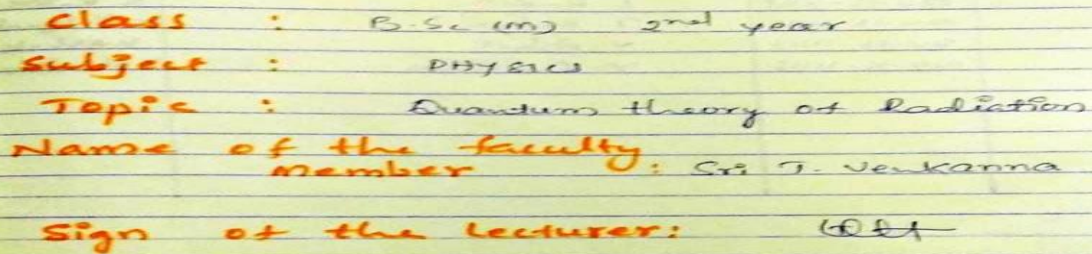 Class : B.Sc (m) 2nd year
Subject : PHYSICS
Topic : Quantum theory of Radiation
Name of the faculty
member : Sri T. Venkanna
Sign of the Lecturer: